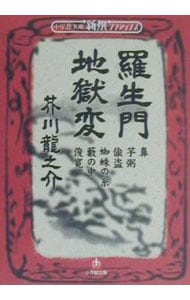 小学館文庫 新撰クラシックス
羅生門
地獄変
芥川龍之介
鼻
芋粥
偸盗
蜘蛛の糸
藪の中
俊寛
小学館文庫